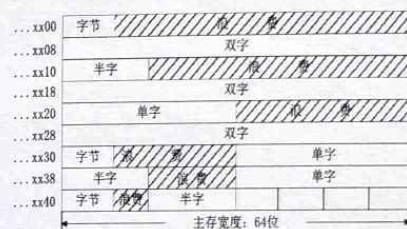 ...xx00 字节 浪 费
...xx08 双字
...xx10 半字 浪 费
...xx18 双字
...xx20 单字 浪 费
...xx28 双字
...xx30 字节 浪 费 单字
...xx38 半字 浪 费 单字
...xx40 字节 浪费 半字
主存宽度：64位